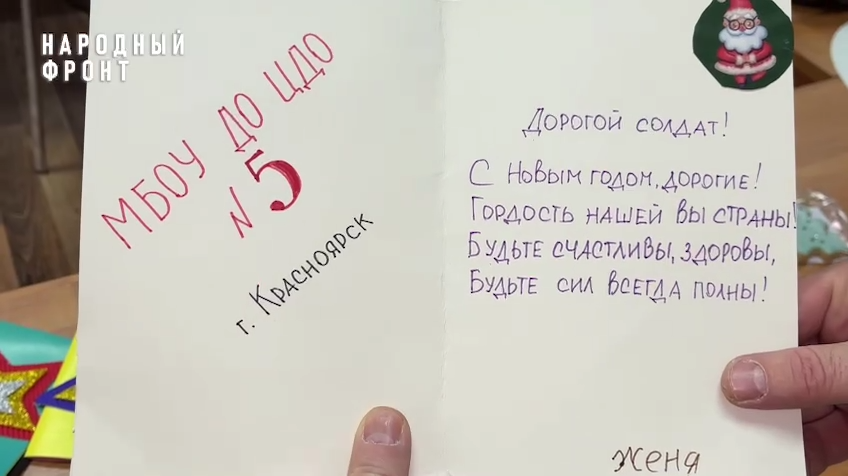 НАРОДНЫЙ
ФРОНТ
МБОУ ДО ЦДО
№ 5
г. Красноярск
Дорогой солдат!
С Новым годом, дорогие!
Гордость нашей вы страны!
Будьте счастливы, здоровы,
Будьте сил всегда полны!
Женя